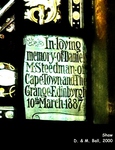 In loving
memory of Daniel
M. Steedman of
Cape Town and The
Grange Edinburgh
10th March 1887
Shaw
D. & M. Ball, 2000